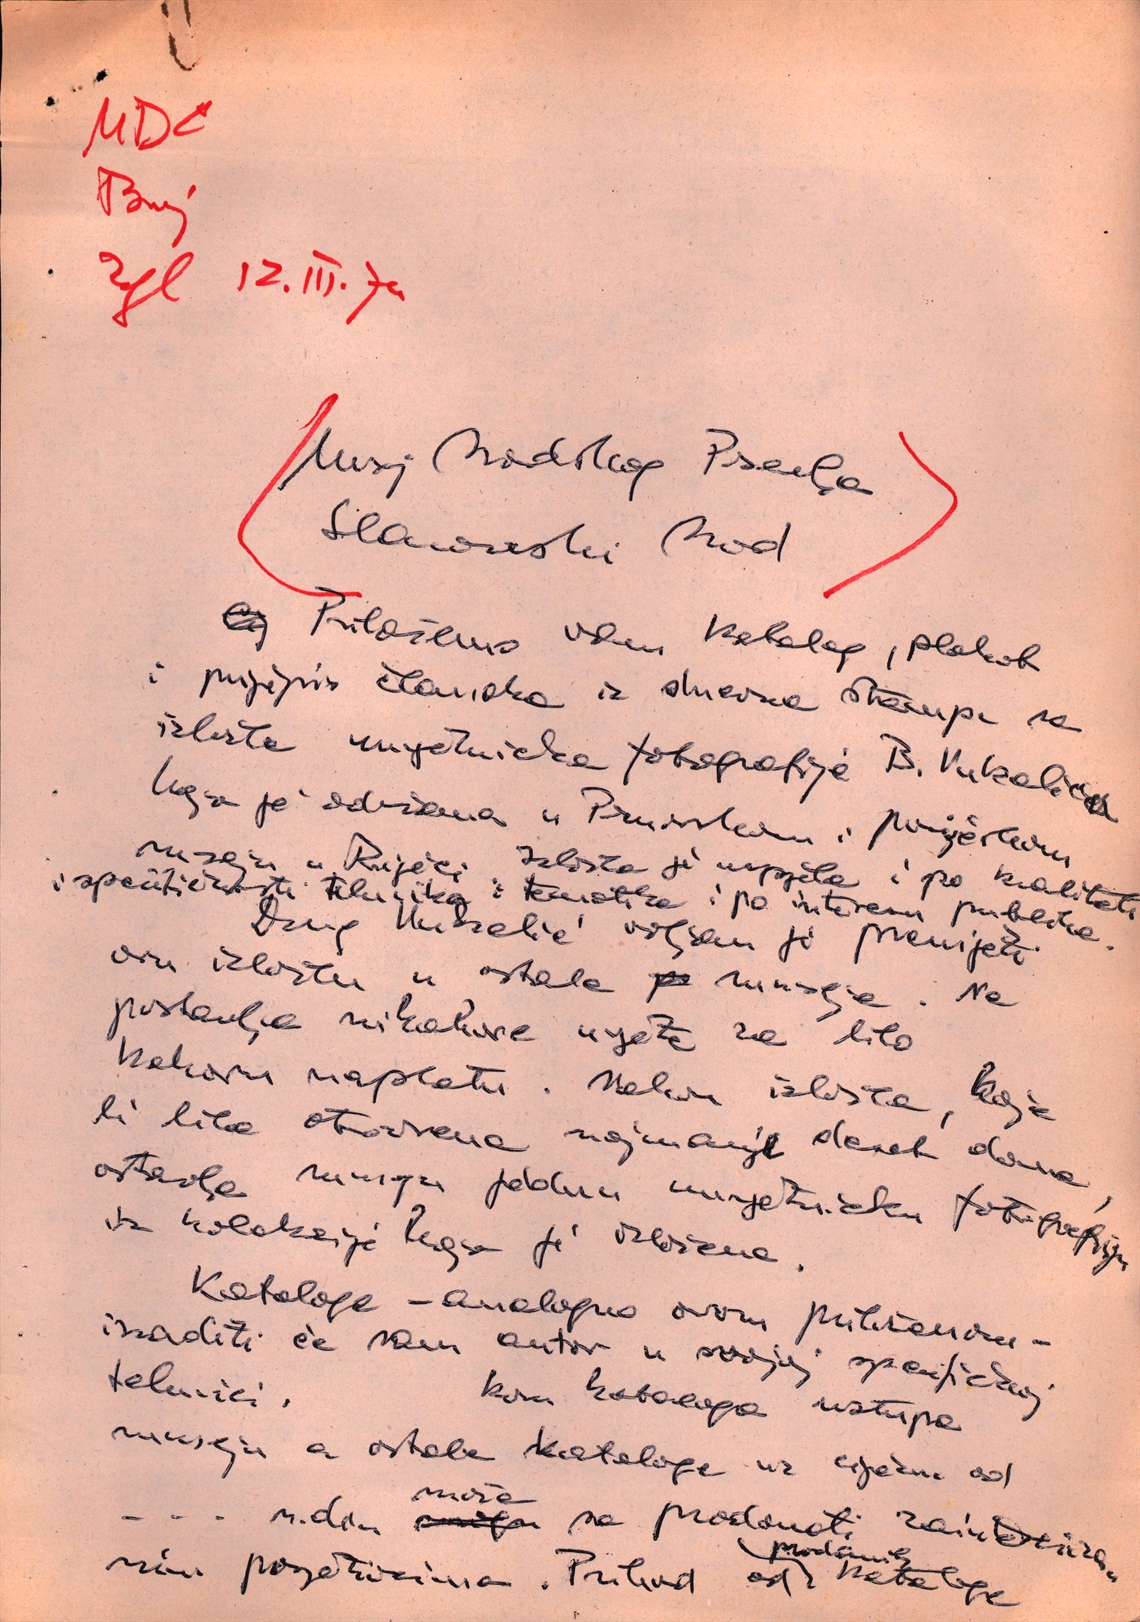 MDC
Broj
Zgb 12. III. 72
Muzej Brodskog Posavlja
Slavonski Brod
Priložemo vam katalog, plakat
i prijepis članaka iz dnevne štampe sa
izložbe umjetničke fotografije B. Vukelića
koja je održana u Pomorskom i povijesnom
muzeju u Rijeci. Izložba je uspjela i po kvaliteti
i specifičnosti tehnike i tematike i po interesu publike.
Drug Vukelić voljan je prenijeti
ovu izložbu u ostale muzeje. Ne
postavlja nikakve uvjete za bilo
kakovu naplatu. Nakon izložbe, koja
bi bila otvorena najmanje deset dana,
ostavlja muzeju jednu umjetničku fotografiju
iz kolekcije koja je izložena.
Kataloge - analogno ovom priloženom -
izraditi će sam autor u svojoj specifičnoj
tehnici. kom kataloga ustupa
muzeju a ostale kataloge uz cijenu od
- - - n.din može se prodavati zainteresira-
nim posjetiocima. Prihod od prodanih kataloga